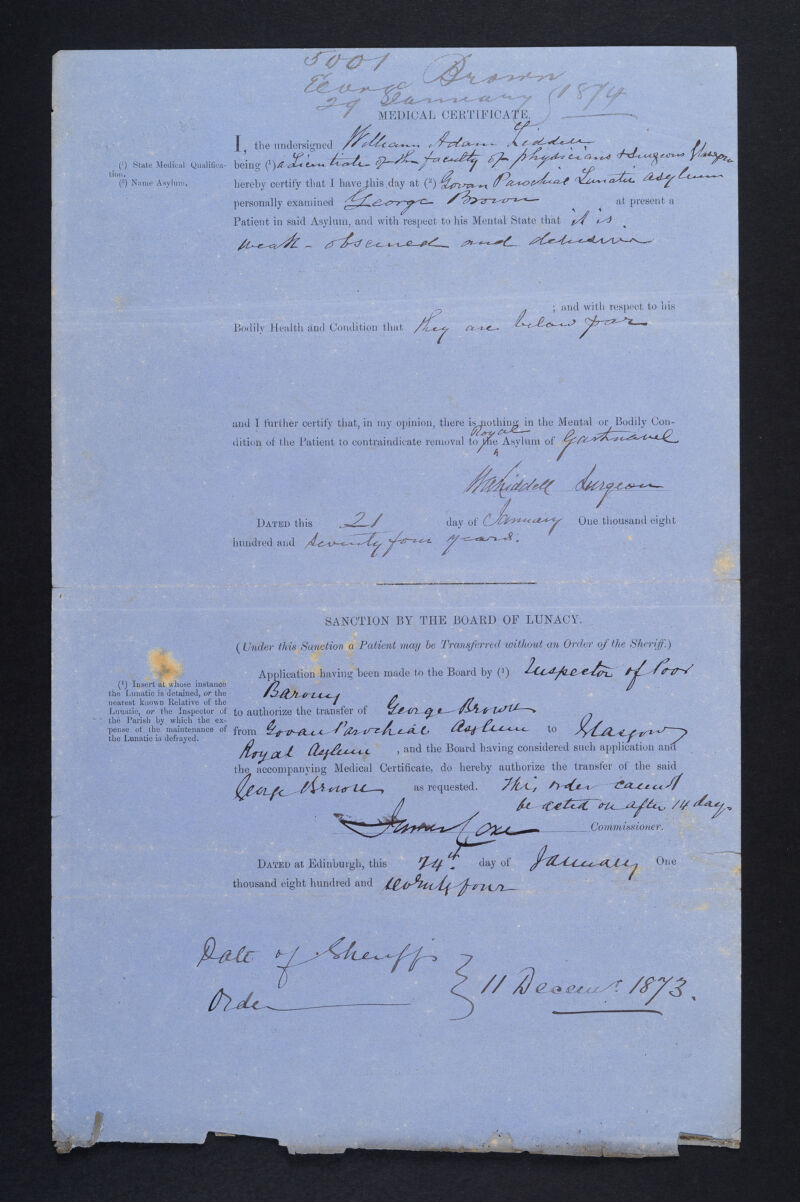 5001
George Brown
29 January } 1874
MEDICAL CERTIFICATE.
I, the undersigned William Adam Liddell
(1) State Medical Qualifica-
tion.
(2) Name Asylum.
being (1) a Licentiate of the faculty of physicians & Surgeons Glasgow
hereby certify that I have this day at (2) Govan Parochial Lunatic Asylum
personally examined George Brown, at present a
Patient in said Asylum, and with respect to his Mental State that it is
weak - obscured and delusive
; and with respect to his
Bodily Health and Condition that they are below par
and I further certify that, in my opinion, there is nothing in the Mental or Bodily Con-
dition of the Patient to contraindicate removal to the Royal Asylum of Gartnavel
WALiddell Surgeon
DATED this 21 day of January One thousand eight
hundred and seventy four years.
SANCTION BY THE BOARD OF LUNACY.
(Under this Sanction a Patient may be Transferred without an Order of the Sheriff.)
(1) Insert at whose instance
the Lunatic is detained, or the
nearest known Relative of the
Lunatic, or the Inspector of
the Parish by which the ex-
pense of the maintenance of
the Lunatic is defrayed.
Application having been made to the Board by (1) Inspector of Poor
Barony
to authorize the transfer of George Brown
from Govan Parochial Asylum to Glasgow
Royal Asylum, and the Board having considered such application and
the accompanying Medical Certificate, do hereby authorize the transfer of the said
George Brown as requested. This order cannot
be acted on after 14 days
James Coxe Commissioner.
DATED at Edinburgh, this 24th. day of January One
thousand eight hundred and seventy four
Date of Sheriff's
Order } 11 Decemr. 1873.